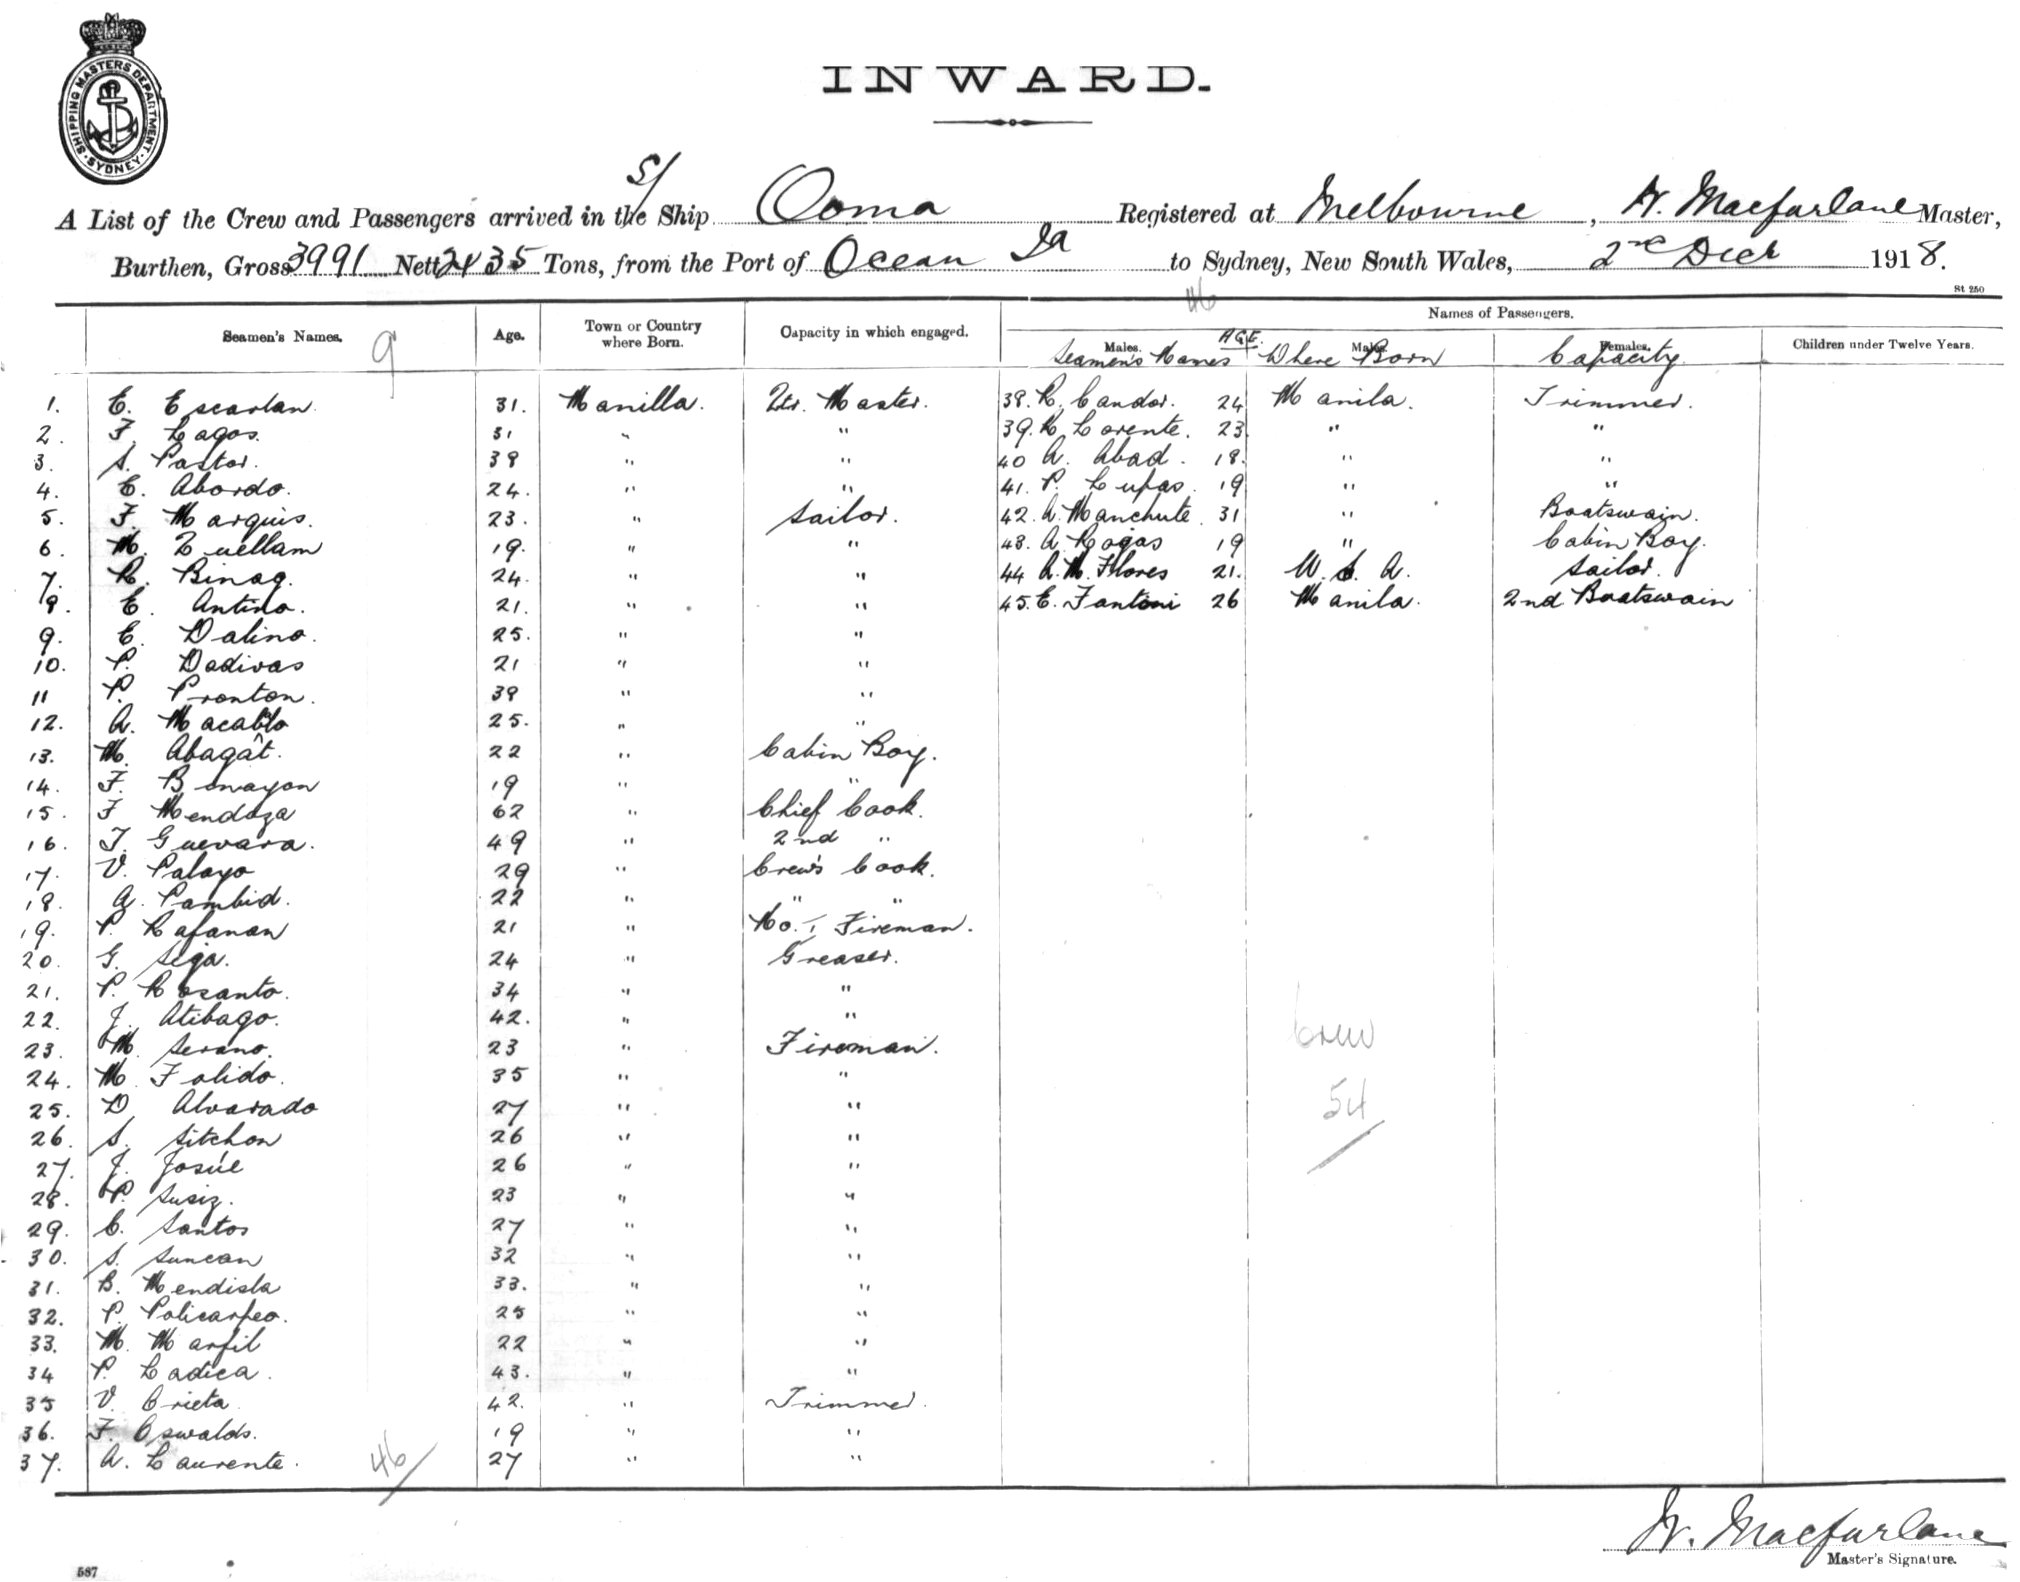 SHIPPING MASTERS DEPARTMENT. SYDNEY
INWARD.
S/
A List of the Crew and Passengers arrived in the Ship Ooma Registered at Melbourne, W. Macfarlane Master,
Burthen, Gross 3991 Nett 2435 Tons, from the Port of Ocean Id to Sydney, New South Wales, 2nd Decr 1918.
St 250
46
Seamen's Names. 9 Age. Town or Country where Born. Capacity in which engaged. Names of Passengers.
Males. Males. Females. Children under Twelve Years.
Seamen's Names AGE. Where Born Capacity.
1. E. Escarlan 31. Manilla. Qtr. Master. 38. R. Candor. 24 Manila. Trimmer.
2. F. Lagos. 31 " " 39. R. Lorente. 23 " "
3. S. Pastor. 38 " " 40 A. Abad. 18. " "
4. E. Abordo. 24. " " 41. P. Lupas. 19 " "
5. F. Marquis. 23. " Sailor. 42. A. Manchute. 31 " Boatswain.
6. M. Luellam 19. " " 43. A. Rojas 19 " Cabin Boy.
7. R. Binag. 24. " " 44 A. M. Flores 21. U. S. A. Sailor.
8. E. Antino. 21. " " 45. E. Fantoni 26 Manila. 2nd Boatswain
9. E. Dalino. 25. " "
10. P. Dadivas 21 " "
11 P. Pronton. 39 " "
12. A. Macablo 25. " "
13. M. Abagat. 22 " Cabin Boy.
14. F. Bmayon 19 " "
15. F Mendoza 62 " Chief Cook.
16. T. Guevara. 49 " 2nd "
17. V. Palayo 29 " Crew's Cook.
18. A. Pambid. 22 " " "
19. P. Rafanan 21 " No. 1 Fireman.
20. G. Siga. 24 " Greaser.
21. P. Rosanto. 34 " "
22. J. Atibago. 42. " "
23. M. Serano. 23 " Fireman.
24. M. Folido. 35 " "
25. D. Alvarado 27 " "
26. S. Sitchon 26 " "
27. J. Josúe 26 " "
28. P. Susiz. 23 " "
29. C. Santos 27 " "
30. S. Suncan 32 " "
31. B. Mendisla 33. " "
32. P. Policarpeo. 25 " "
33. M. Marfil 22 " "
34 P. Ladica. 43. " "
35 V. Crieta. 42. " Trimmer.
36. F. Oswalds. 19 " "
37. A. Laurente. 46/ 27 " "
Crew
54
W. Macfarlane
Master's Signature.
587